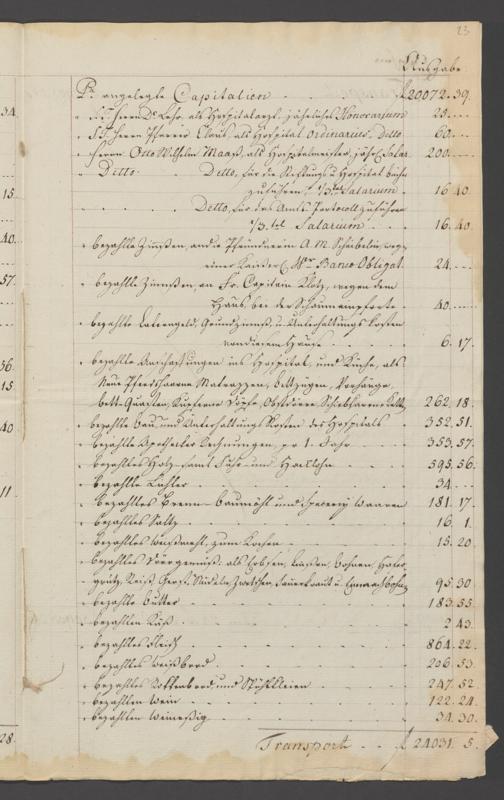 23
Ausgabe
Pr. angelegte Capitalien . . . f 20072. 39.
" S. T. Herrn Dr. Lehr, als Hospitalarzt, jährliches Honorarium 25. . . .
" S. T. Herrn Pfarrer Claus als Hospital Ordinarius, Ditto 60. . . .
" Herrn Otto Wilhelm Maass, als Hospitalmeister, jährl. Salar 200. . . .
" Ditto . Ditto, für die Stiftungs u. Hospital bücher
zu führen, 1/3tel Salarium . 16. 40.
Ditto, für das Amts Protocoll zu führen
1/3 tel Salarium . . 16. 40.
" bezahlte Zinnsen, an die Pfründnerin A. M. Scheibelin, wegen
einer Kaiserl. Wr Banco Obligat. 24. . . .
" bezahlte Zinnsen an Fr. Capitain Klotz, wegen dem
Haus, bei der Schaumeinpforte . 40. . . .
" bezahlte Laternengeld, Grundzinnss, u. Unterhaltungs kosten
von diesem Hause . . 6. 17.
" bezahlte Anschaffungen ins Hospital, und Küche, als
Neue Pferdhaarne Matrazzen, bettzügen, Vorhänge,
262. 18.
" bezahlte bau und Unterhaltungs kosten des Hospitals . 352. 51.
" bezahlte Apotheker Rechnungen, pr. 1. Jahr . . 353. 57.
" bezahltes Holz, samt Fuhr- und Hacklohn . . 595. 56.
" bezahlte . . . 34. . . .
" bezahltes Brenn- baumöhl und Specerey Waaren 181. 17.
" bezahltes Saltz . . . 16. 1.
" bezahltes Weißmehl, zum Kochen . . . 15. 20.
" bezahltes Dörrgemüss: als Erbsen, Linsen, bohnen, Haber
grütz, Reiss, Gerst, Nudeln, Zwetschen, Sauerkraut u. 95. 30
" bezahlte butter . . . 183. 55.
" bezahlten Käss . . . 2. 43.
" bezahltes Fleisch . . . 864. 22.
" bezahltes Weißbrod . . . 206. 53.
" bezahltes Rockenbrod, und . . . 247. 52.
" bezahlten Wein . . . 122. 24.
" bezahlten Weinessig . . . 34. 30.
Transport . . . f 24031. 5.